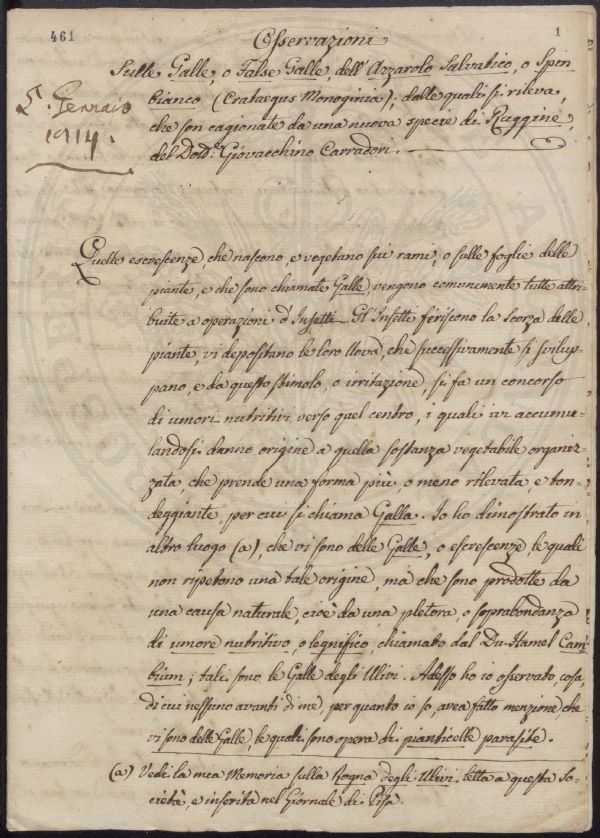 461
1
Osservazioni
Sulle Galle, o False Galle, dell'Azzarolo Salvatico, o Spin
bianco (Crataegus Monoginia); dalle quali si rileva,
che son cagionate da una nuova specie di Ruggine,
del Dott.r Giovacchino Carradori.
Gennaio
Quelle escrescenze, che nascono, e vegetano sui rami, o sulle foglie delle
piante, e che sono chiamate Galle, vengono comunemente tutte attri-
buite a operazioni d'Insetti. Gl'Insetti feriscono la scorza delle
piante, vi depositano le loro Uova, che successivamente si svilup-
pano, e da questo stimolo, o irritazione, si fa un concorso
di umori nutritivi verso quel centro, i quali ivi accumu-
landosi, danno origine a quella sostanza vegetabile organiz-
zata, che prende una forma più, o meno rilevata, e ton-
deggiante, per cui si chiama Galla. Io ho dimostrato in
altro luogo (a), che vi sono delle Galle, o escrescenze, le quali
non ripetono una tale origine, ma che sono prodotte da
una causa naturale, cioè da una pletora, o soprabondanza
di umore nutritivo, o legnifico, chiamato dal Du-Hamel Cam-
bium; tali sono le Galle degli Ulivi. Adesso ho io osservato, cosa,
di cui nessuno avanti di me, per quanto io so, avea fatto menzione, che
vi sono delle Galle, le quali sono opera di pianticelle parasite.
(a) Vedi la mia Memoria sulla Rogna degli Ulivi letta a questa So-
cietà, e inserita nel Giornale di Pisa.